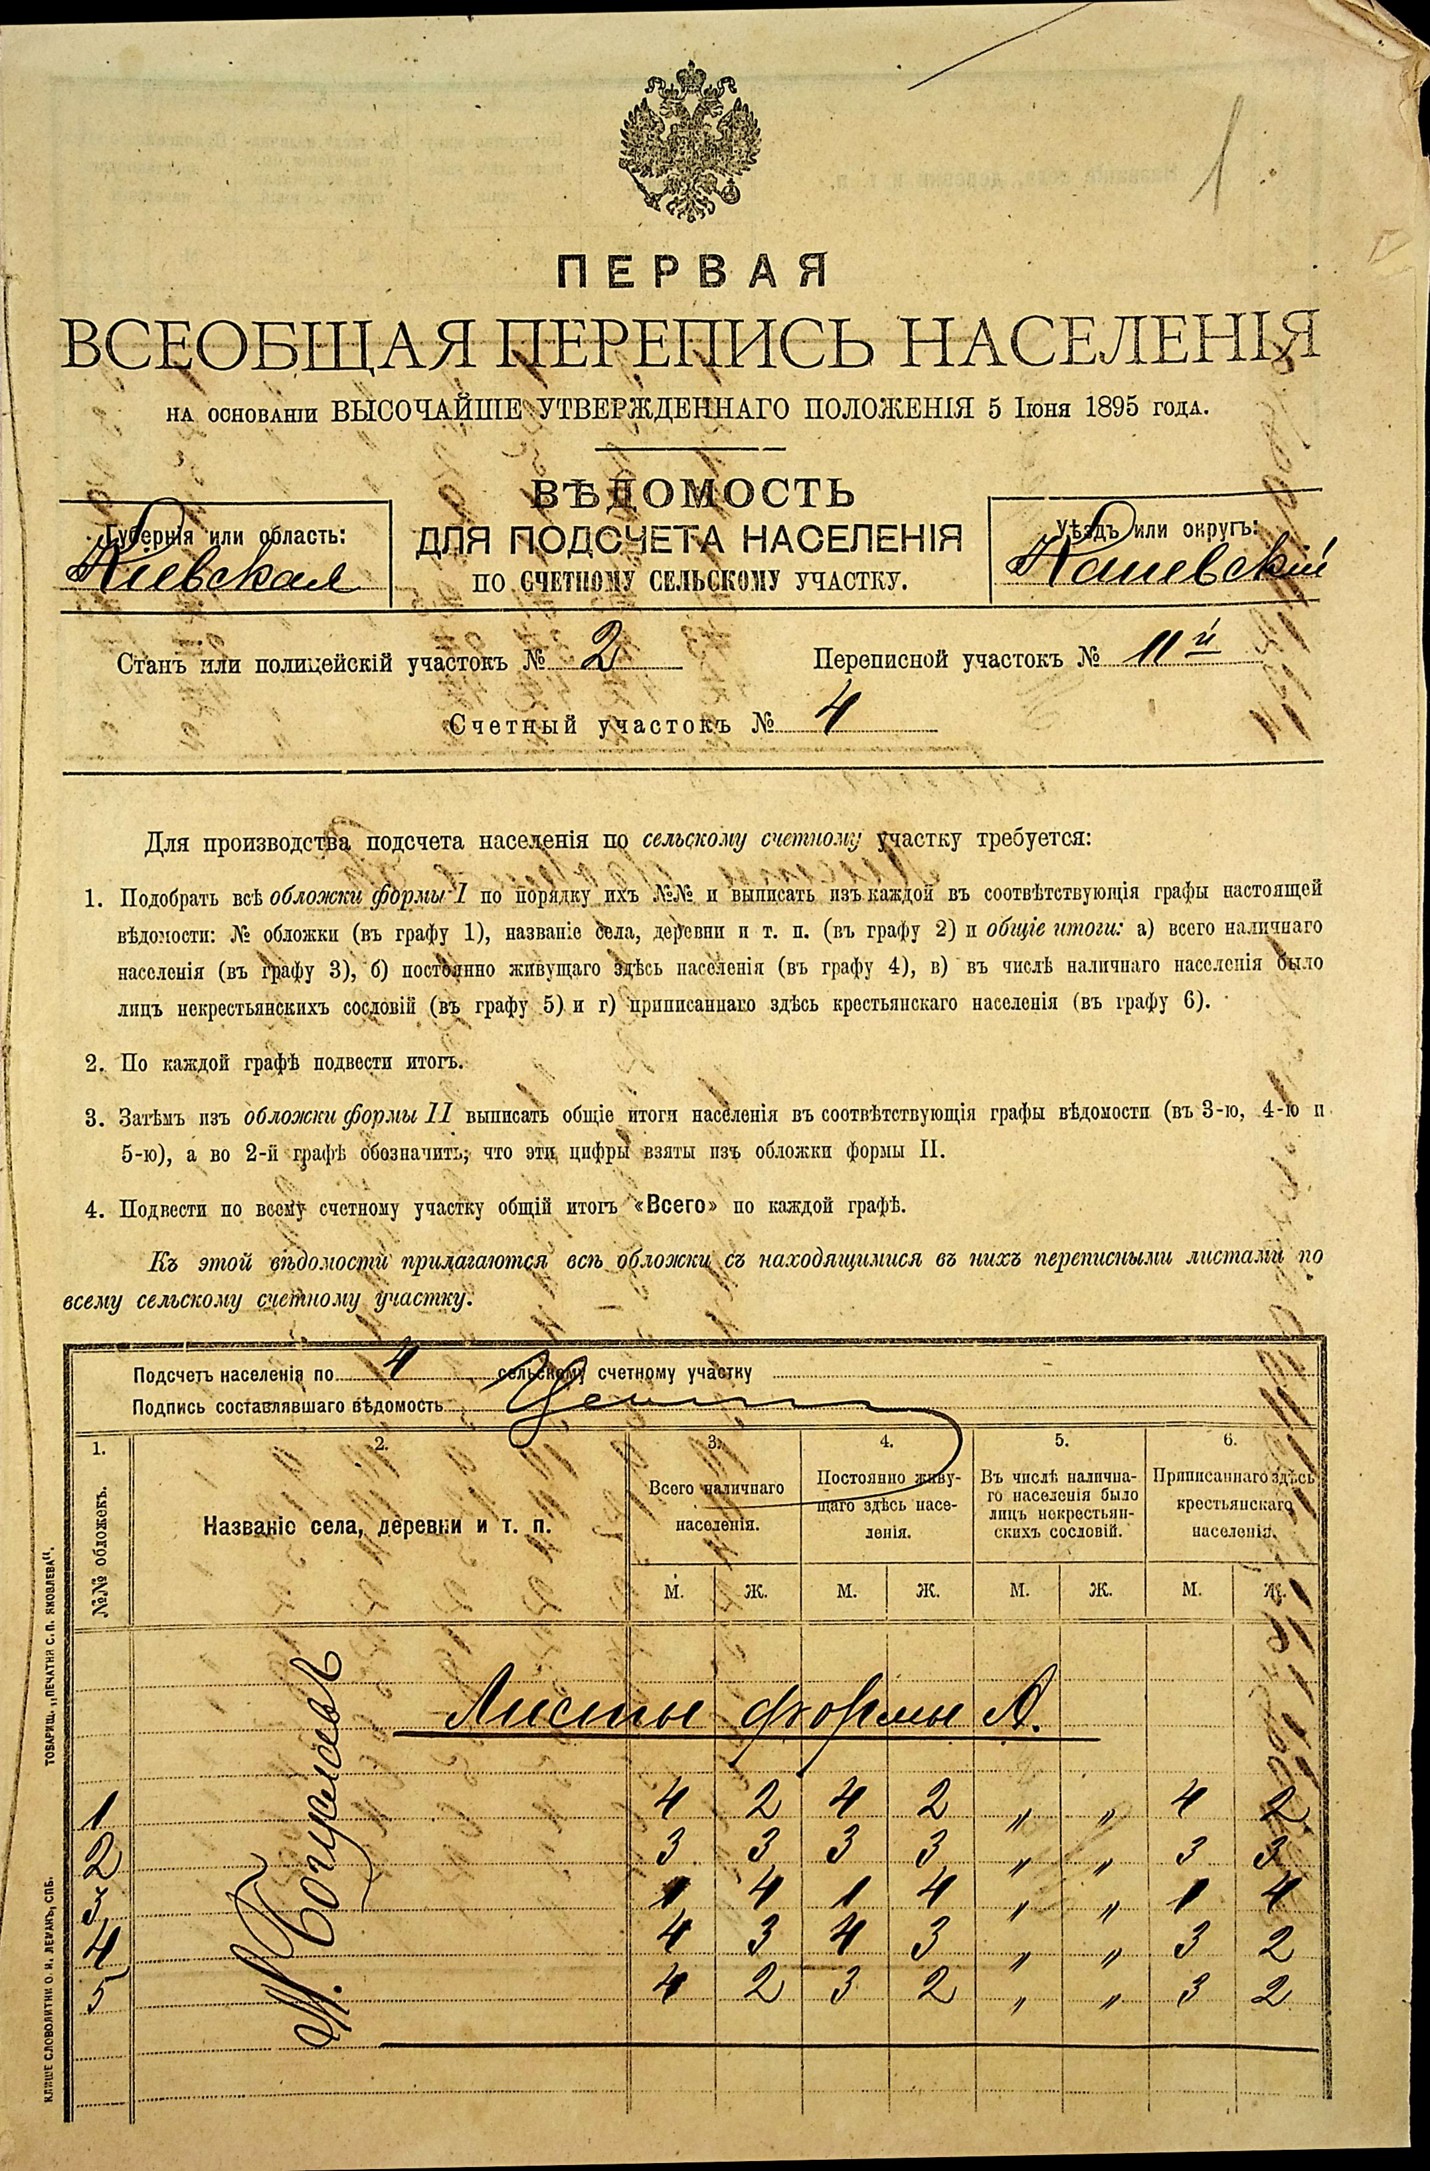 1
ПЕРВАЯ
ВСЕОБЩАЯ ПЕРЕПИСЬ НАСЕЛЕНІЯ
НА ОСНОВАНІИ ВЫСОЧАЙШЕ УТВЕРЖДЕННАГО ПОЛОЖЕНІЯ 5 Іюня 1895 ГОДА.
ВѢДОМОСТЬ
ДЛЯ ПОДСЧЕТА НАСЕЛЕНІЯ
ПО СЧЕТНОМУ СЕЛЬСКОМУ УЧАСТКУ.
Губернія или область:
Кіевская
Уѣздъ или округъ:
Каневскій
Станъ или полицейскій участокъ № 2 Переписной участокъ № 11й
Счетный участокъ № 4
Для производства подсчета населенія по сельскому счетному участку требуется:
1. Подобрать всѣ обложки формы I по порядку ихъ №№ и выписать изъ каждой въ соотвѣтствующія графы настоящей
вѣдомости: № обложки (въ графу 1), названіе села, деревни и т. п. (въ графу 2) и общіе итоги: а) всего наличнаго
населенія (въ графу 3), б) постоянно живущаго здѣсь населенія (въ графу 4), в) въ числѣ наличнаго населенія было
лицъ некрестьянскихъ сословій (въ графу 5) и г) приписаннаго здѣсь крестьянскаго населенія (въ графу 6).
2. По каждой графѣ подвести итогъ.
3. Затѣмъ изъ обложки формы II выписать общіе итоги населенія въ соотвѣтствующія графы вѣдомости (въ 3-ю, 4-ю и
5-ю), а во 2-й графѣ обозначить, что эти цифры взяты изъ обложки формы II.
4. Подвести по всему счетному участку общій итогъ «Всего» по каждой графѣ.
Къ этой вѣдомости прилагаются всѣ обложки съ находящимися въ нихъ переписными листами по
всему сельскому счетному участку.
Подсчетъ населенія по 4 сельскому счетному участку
Подпись составлявшаго вѣдомость
1. 2. 3. 4. 5. 6.
№№ обложекъ.
Названіе села, деревни и т. п.
Всего наличнаго
населенія.
Постоянно живу-
щаго здѣсь насе-
ленія.
Въ числѣ налична-
го населенія было
лицъ некрестьян-
скихъ сословій.
Приписаннаго здѣсь
крестьянскаго
населенія.
М. Ж. М. Ж. М. Ж. М. Ж.
Листы формы А.
М. Богуслав
1 4 2 4 2 " " 4 2
2 3 3 3 3 " " 3 3
3 1 4 1 4 " " 1 4
4 4 3 4 3 " " 3 2
5 4 2 3 2 " " 3 2
КЛИШЕ СЛОВОЛИТНИ О. И. ЛЕМАНЪ, СПБ. ТОВАРИЩ. „ПЕЧАТНЯ С. П. ЯКОВЛЕВА“.